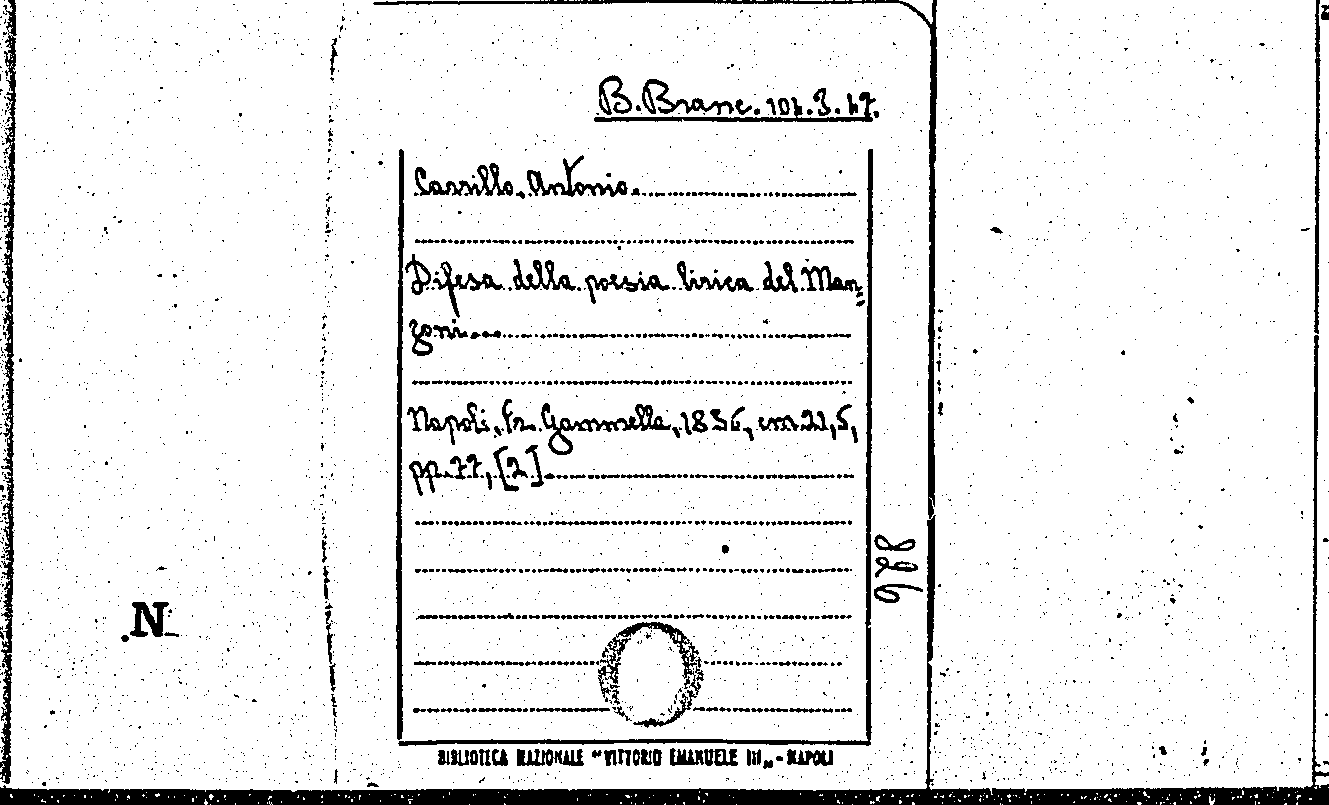 B. Branc. 101. 3. 47.
Cassillo, Antonio.
Difesa della poesia lirica del Man=
zoni...
Napoli, Fr. 1836, cm 21,5,
pp. 77, [2].
N
BIBLIOTECA NAZIONALE "VITTORIO EMANUELE III„ - NAPOLI